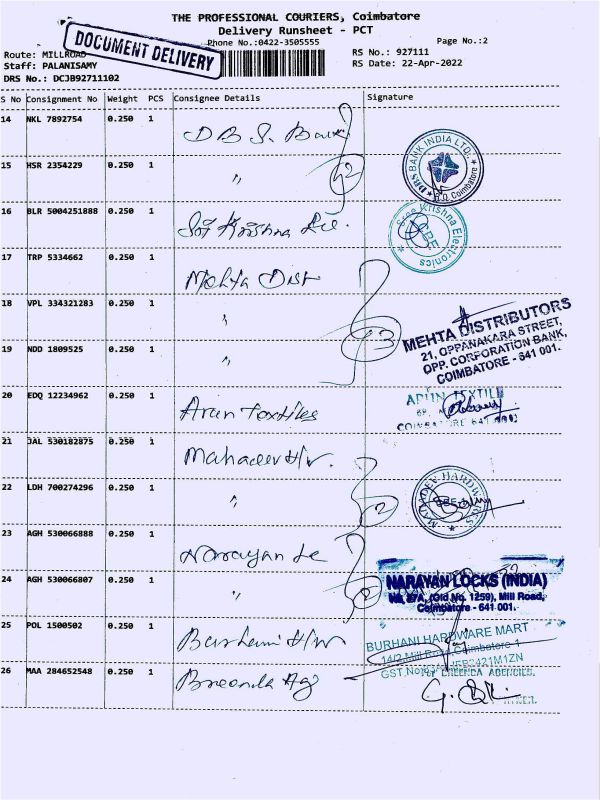 THE PROFESSIONAL COURIERS, Coimbatore
Delivery Runsheet - PCT
Phone No.:0422-3505555
Page No.:2
DOCUMENT DELIVERY
Route: MILLROAD
RS No.: 927111
Staff: PALANISAMY
RS Date: 22-Apr-2022
DRS No.: DCJB92711102
S No Consignment No Weight PCS Consignee Details Signature
14 NKL 7892754 0.250 1 DBS Bank
DBS BANK INDIA LTD. R.O. Coimbatore
15 HSR 2354229 0.250 1 〃
2
16 BLR 5004251888 0.250 1 Sri Krishna Ele.
Sree Krishna Electronics CBE.
17 TRP 5334662 0.250 1 Mehta Dist
18 VPL 334321283 0.250 1 〃
3
MEHTA DISTRIBUTORS
21, OPPANAKARA STREET,
OPP. CORPORATION BANK,
COIMBATORE - 641 001.
19 NDD 1809525 0.250 1 〃
20 EDQ 12234962 0.250 1 Arun Textiles
ARUN TEXTIL
COIMBATORE 641 001
21 JAL 530182875 0.250 1 Mahadev H/w.
22 LDH 700274296 0.250 1 〃
2
MAHADEV HARDWARES
23 AGH 530066888 0.250 1 Narayan Lc
24 AGH 530066807 0.250 1 〃
2
NARAYAN LOCKS (INDIA)
No. 27A, (Old No. 1259), Mill Road,
Coimbatore - 641 001.
25 POL 1500502 0.250 1 Burhani H/w
BURHANI HARDWARE MART
14/2 Mill Road, Coimbatore-1
GST.No
26 MAA 284652548 0.250 1 Breenda Ag
For BREENDA AGENCIES.